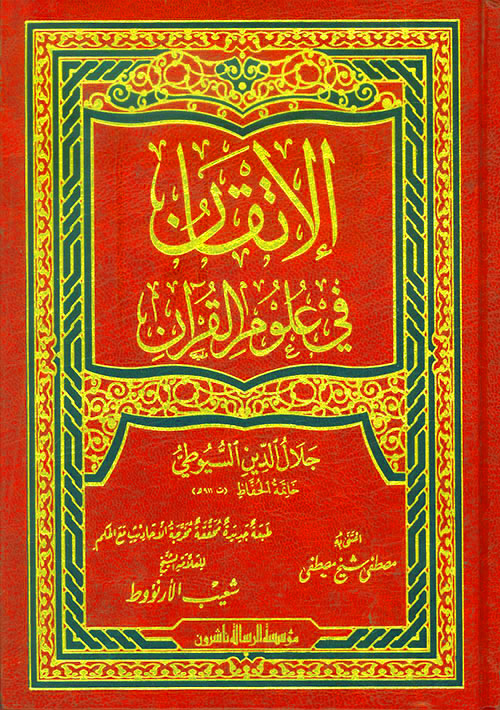 الإتقان
في علوم القرآن
جلال الدين السيوطي
خاتمة الحفاظ (ت ٩١١هـ)
طبعة جديدة محققة مخرجة الأحاديث مع الحكم
للعلامة الشيخ
شعيب الأرنؤوط
اعتنى به
مصطفى شيخ مصطفى
مؤسسة الرسالة ناشرون